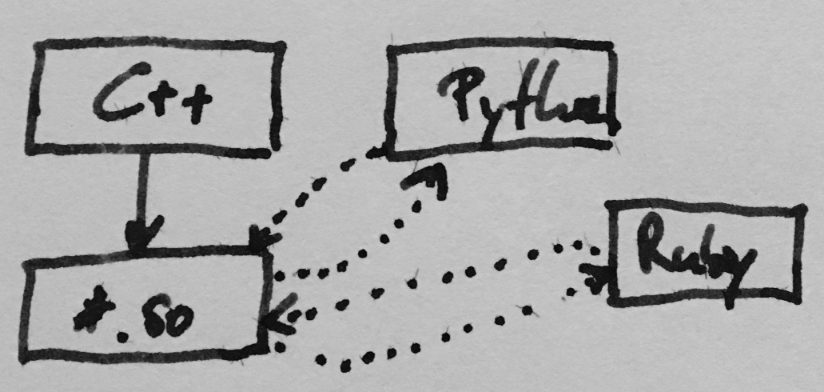 C++
Python
Ruby
*.so